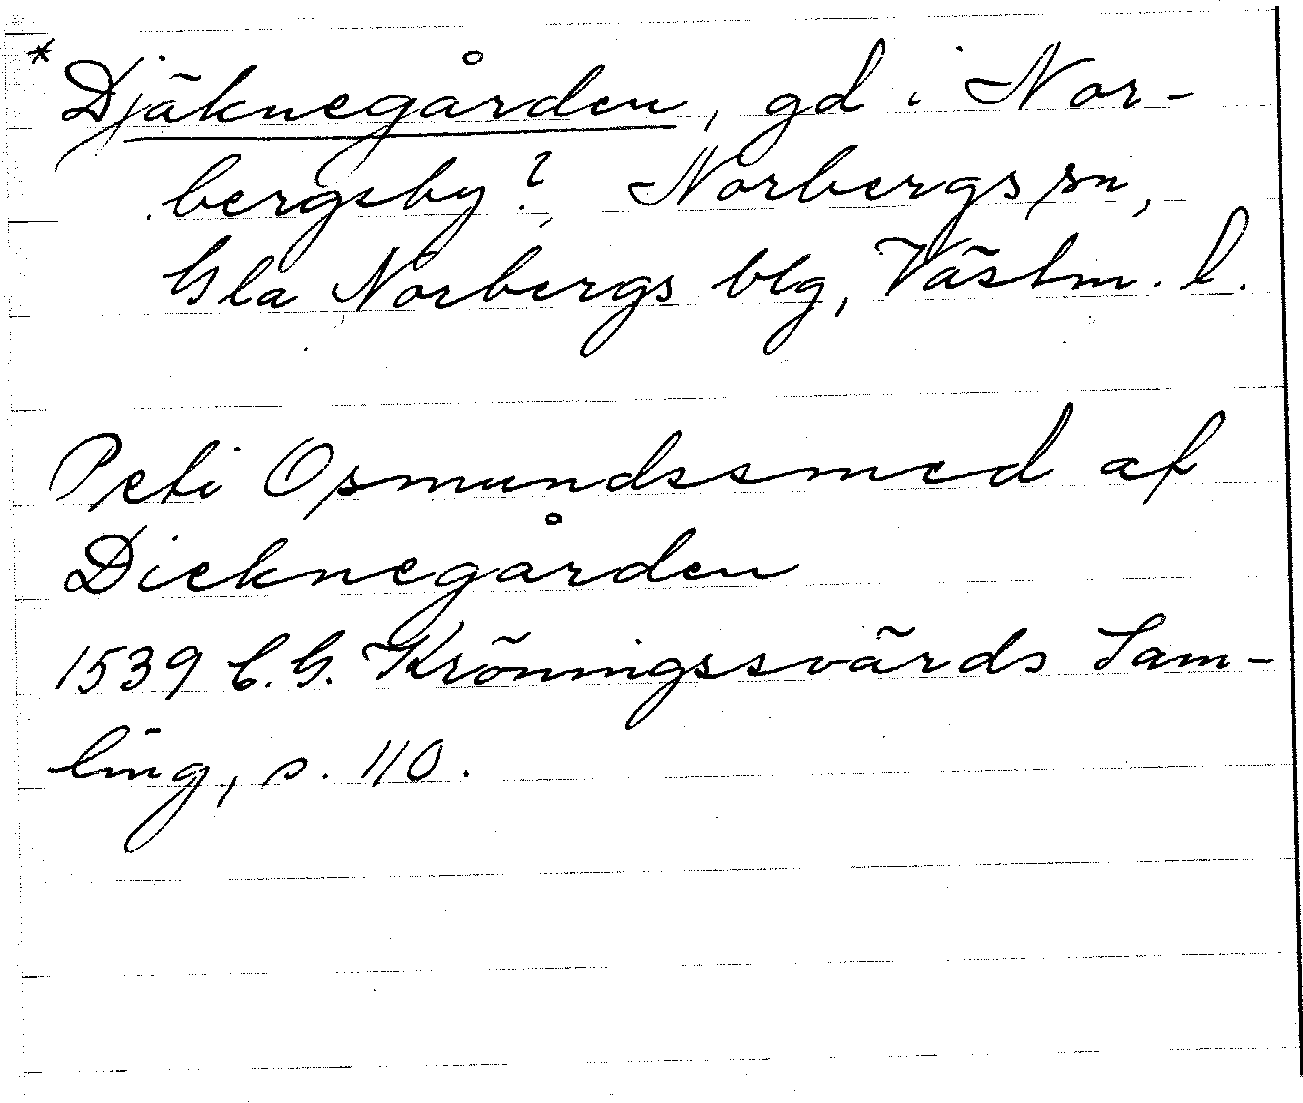 * Djäknegården, gd i Nor-
bergsby?, Norbergs sn,
Gla Norbergs blg, Västm. l.
Peti Osmundssmed af
Dieknegården
1539 C.G. Kröningssvärds Sam-
ling, s. 110.